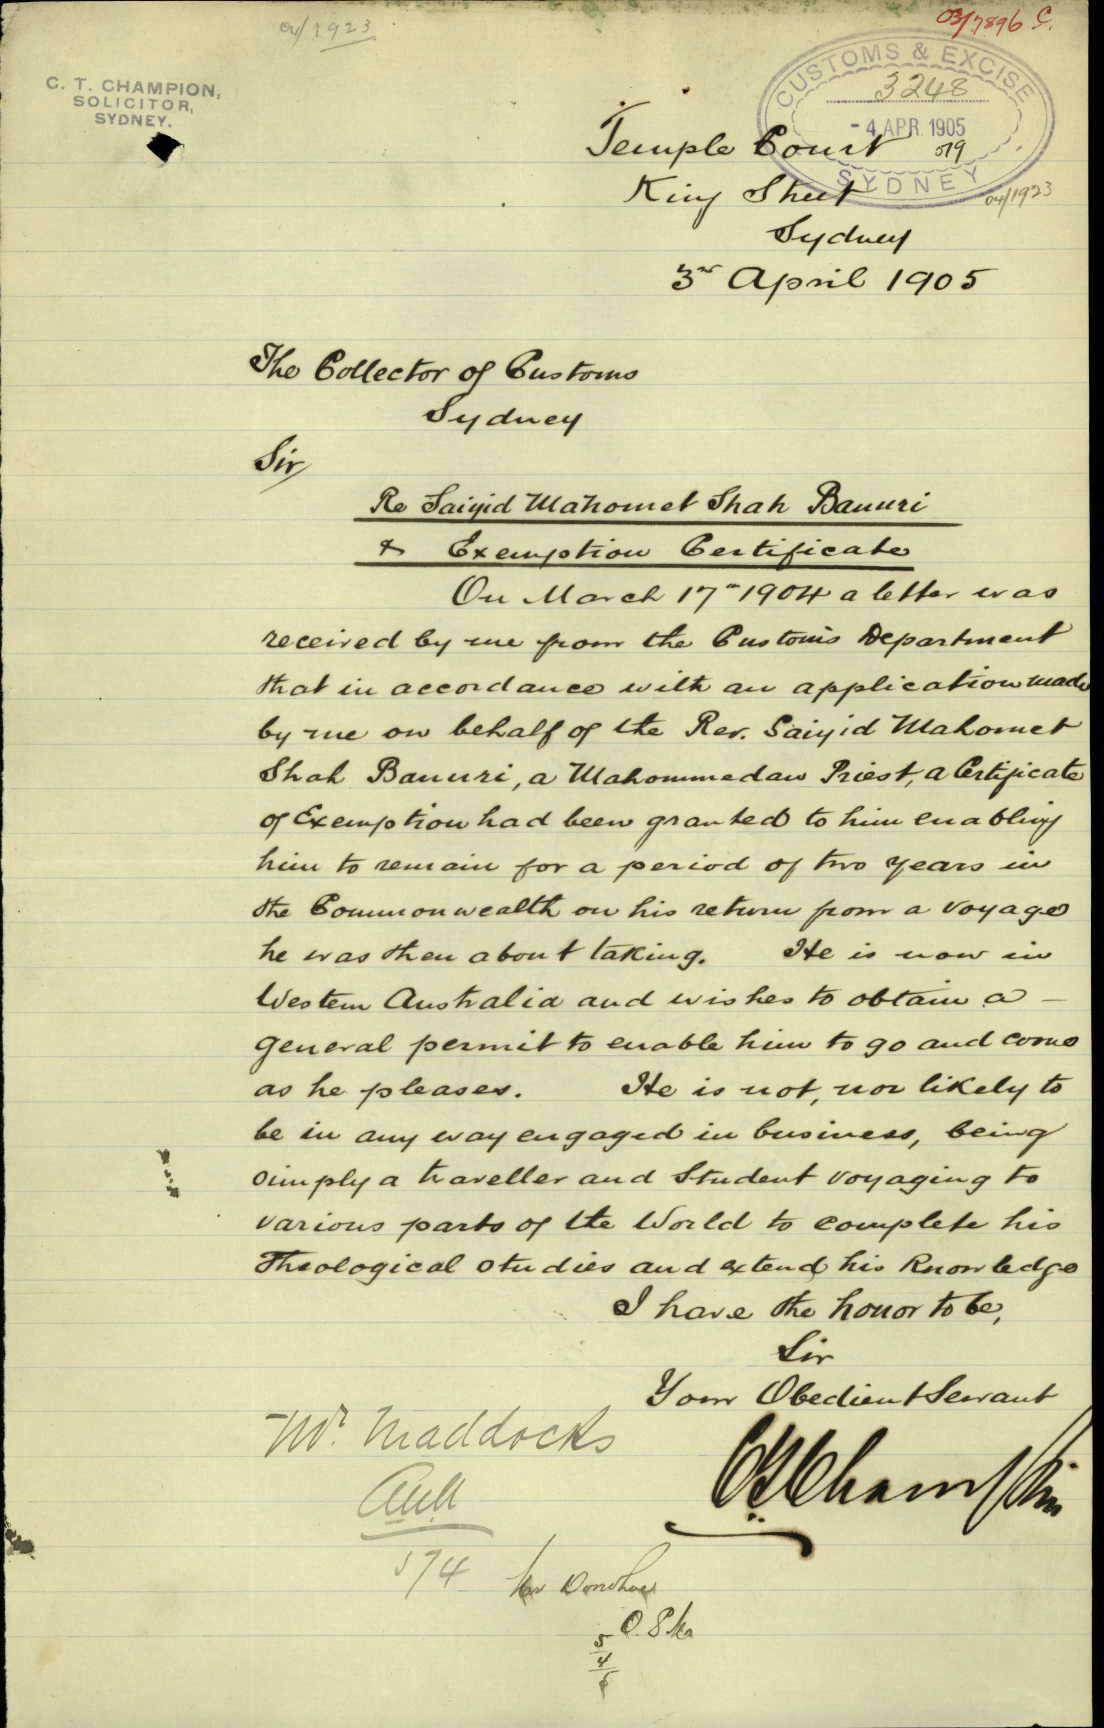 04/1923
03/7896 C.
C. T. CHAMPION,
SOLICITOR,
SYDNEY.
CUSTOMS & EXCISE
3248
- 4 APR. 1905
SYDNEY
04/1923
Temple Court
King Street
Sydney
3rd April 1905
The Collector of Customs
Sydney
Sir
Re Saiyid Mahomet Shah Banuri
& Exemption Certificate
On March 17th 1904 a letter was
received by me from the Customs Department
that in accordance with an application made
by me on behalf of the Rev. Saiyid Mahomet
Shah Banuri, a Mahommedan Priest, a Certificate
of Exemption had been granted to him enabling
him to remain for a period of two years in
the Commonwealth on his return from a voyage
he was then about taking. He is now in
Western Australia and wishes to obtain a —
general permit to enable him to go and come
as he pleases. He is not, nor likely to
be in any way engaged in business, being
simply a traveller and Student voyaging to
various parts of the World to complete his
Theological studies and extend his Knowledge
I have the honor to be,
Sir
Your Obedient Servant
C T Champion
Mr. Maddocks
5/4
Mr Donohoe
5
4
5